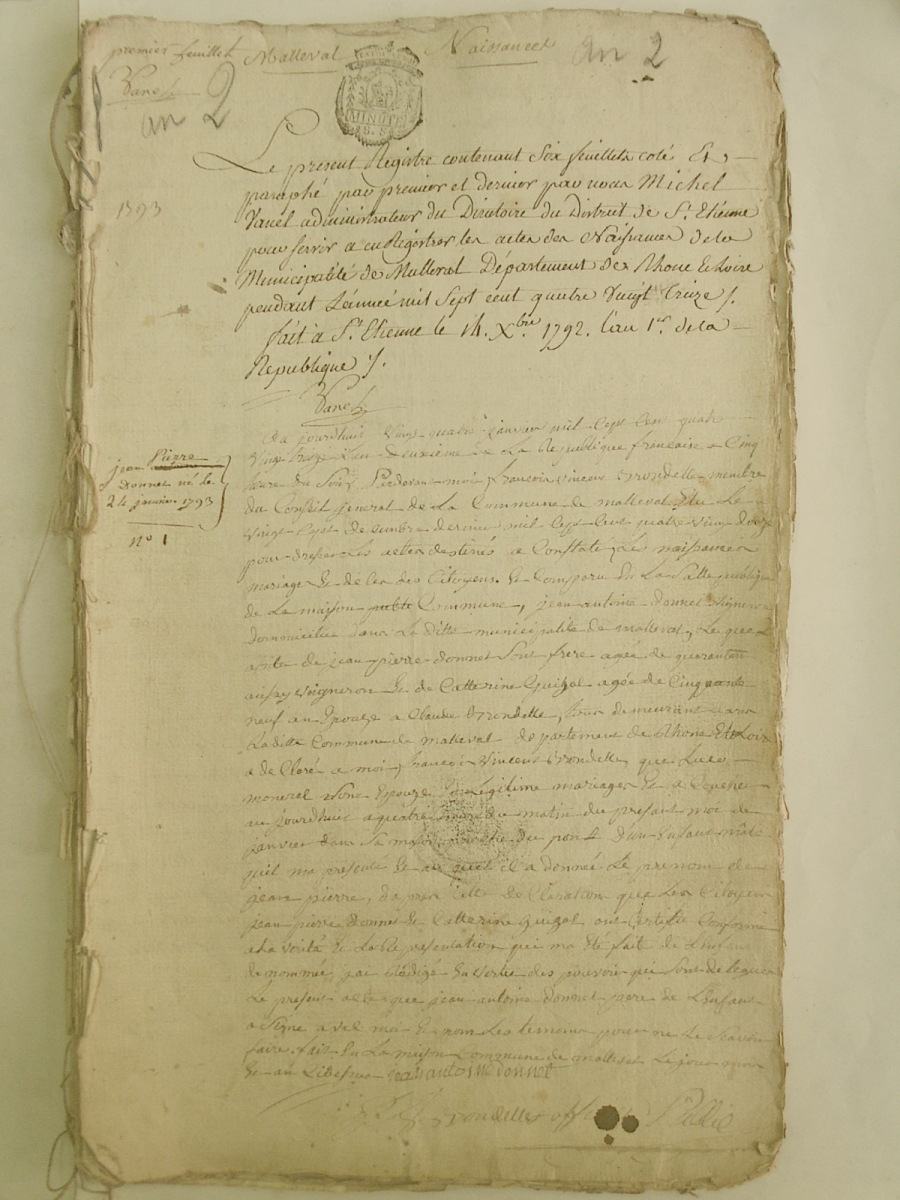 premier feuillet Malleval Naissances an 2
Vanel
an 2
MINUTE
Le present Registre contenant Six feuillets coté Et
paraphé par premier et dernier par nous Michel
Vanel administrateur du Directoire du District de St. Etienne
pour servir a enRegistrer les actes des Naissances de la
Municipalité de Malleval Département de Rhone Et Loire
pendant L'année mil Sept cent quatre Vingt Treize ./.
fait à St. Etienne le 14. Xbre 1792. l'an 1er. de la
Republique ./.
Vanel
1793
jean Pierre
donnet né le
24 janvier 1793
no 1
au jourdhuit Vingt quatre janvier mil Sept Cen quatre
Vingt treze Lan deuxieme de La Republique francaise a Cinq
heure du Soir Pardevant moi francois vincens Grondette membre
du Conseil general de La Commune de malleval Elu Le
Vingt Sept decembre dernier mil Sept Cent quatre Vingt douze
pour dresser Les actes destinés a Constater Les naissances
mariages Et deces des Citoyens Est Comparu En La Salle publique
de La maison Commune, jean antoine donnet Vigneron
domicilié dans La ditte municipalité de malleval, Le quel
de jean pierre donnet Son frere agée de quarante
Vigneron Et de Catterine Guizol agée de Cinquante
neuf an Epouze a Claude Grondette, tous demeurant dans
La ditte Commune de malleval departement de Rhone Et Loire
a declaré a moi francois Vincent Grondette que
Epouze En Légitime mariage Est a
au jourdhuit a quatre heures du matin du présent moi de
janvier dans Sa maison du port d'un Enfant mâle
quil ma présenté Et au quel il a donnée Le prenom de
jean pierre, da pres Cette declaration que Les Citoyens
jean pierre donnet Et Catterine Guizol ont Certifié Conforme
a La vérité Et La Representation qui ma été fait de Lenfant
denommée, jai rédigé En Vertu des pouvoirs qui Sont delegués
Le présent acte que jean antoine donnet pere de Lenfant
a Signé avec moi Et non Les temoins pour ne Le Scavoir
faire. fait En La maison Commune de malleval Le jour moi
Et an Cidessus jean antoine donnet
Grondette officier Public